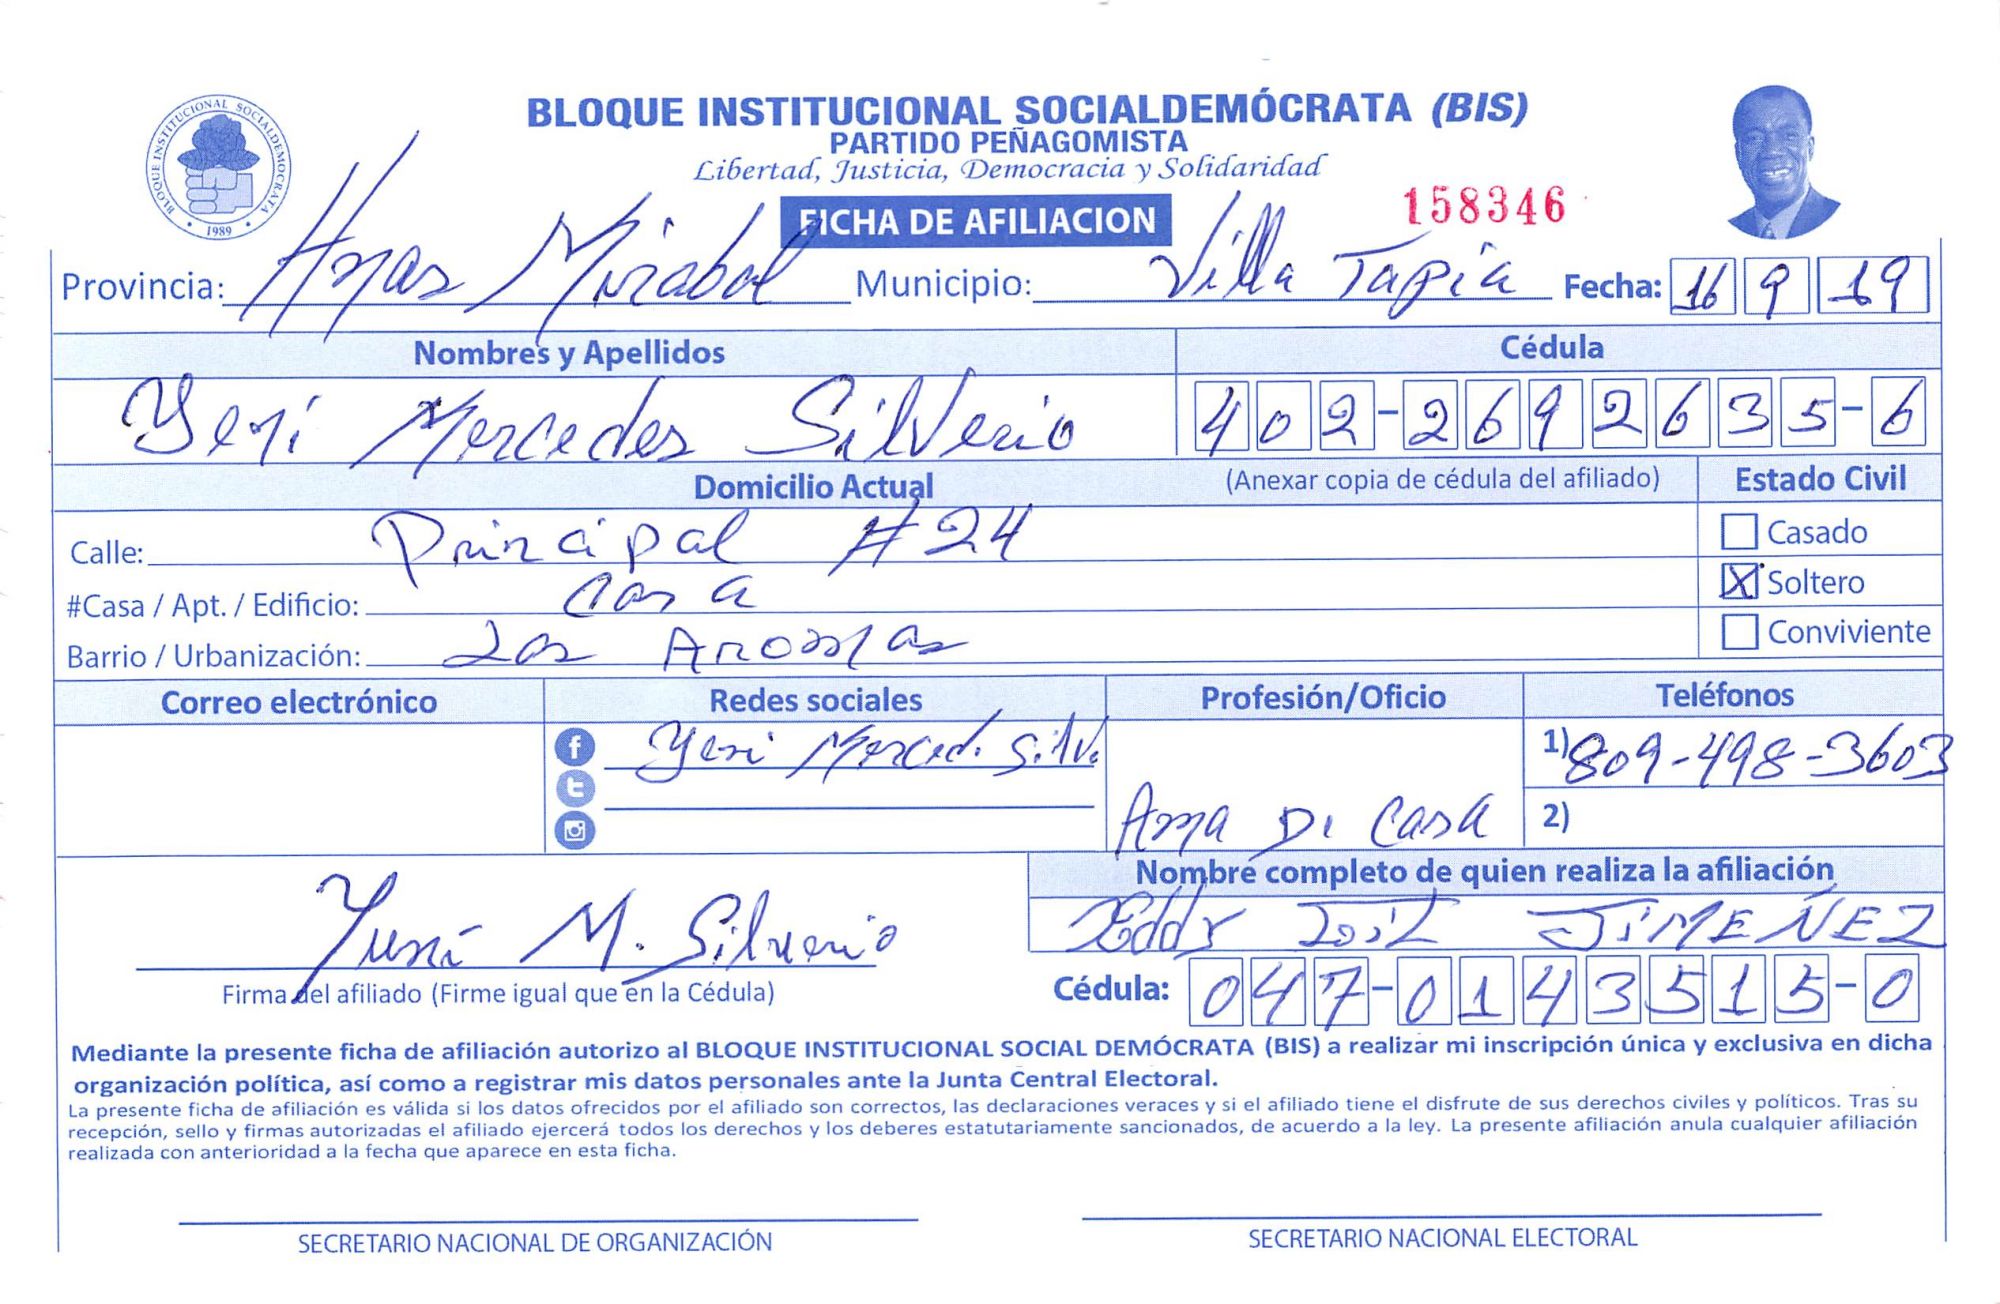 BLOQUE INSTITUCIONAL SOCIALDEMÓCRATA (BIS)
PARTIDO PEÑAGOMISTA
Libertad, Justicia, Democracia y Solidaridad
BLOQUE INSTITUCIONAL SOCIALDEMOCRATA
1989
FICHA DE AFILIACION
158346
Provincia: Hnas Mirabal Municipio: Villa Tapia Fecha: 16 9 19
Nombres y Apellidos Cédula
Yeni Mercedes Silverio 402-2692635-6
Domicilio Actual (Anexar copia de cédula del afiliado) Estado Civil
Calle: Principal #24 Casado
#Casa / Apt. / Edificio: Casa X Soltero
Barrio / Urbanización: Las Aromas Conviviente
Correo electrónico Redes sociales Profesión/Oficio Teléfonos
Yeni Merced. Silve. 1) 809-498-3603
Ama De Casa 2)
Nombre completo de quien realiza la afiliación
Yuni M. Silverio JIMEÑEZ
Firma del afiliado (Firme igual que en la Cédula) Cédula: 047-0143515-0
Mediante la presente ficha de afiliación autorizo al BLOQUE INSTITUCIONAL SOCIAL DEMÓCRATA (BIS) a realizar mi inscripción única y exclusiva en dicha
organización política, así como a registrar mis datos personales ante la Junta Central Electoral.
La presente ficha de afiliación es válida si los datos ofrecidos por el afiliado son correctos, las declaraciones veraces y si el afiliado tiene el disfrute de sus derechos civiles y políticos. Tras su
recepción, sello y firmas autorizadas el afiliado ejercerá todos los derechos y los deberes estatutariamente sancionados, de acuerdo a la ley. La presente afiliación anula cualquier afiliación
realizada con anterioridad a la fecha que aparece en esta ficha.
SECRETARIO NACIONAL DE ORGANIZACIÓN SECRETARIO NACIONAL ELECTORAL